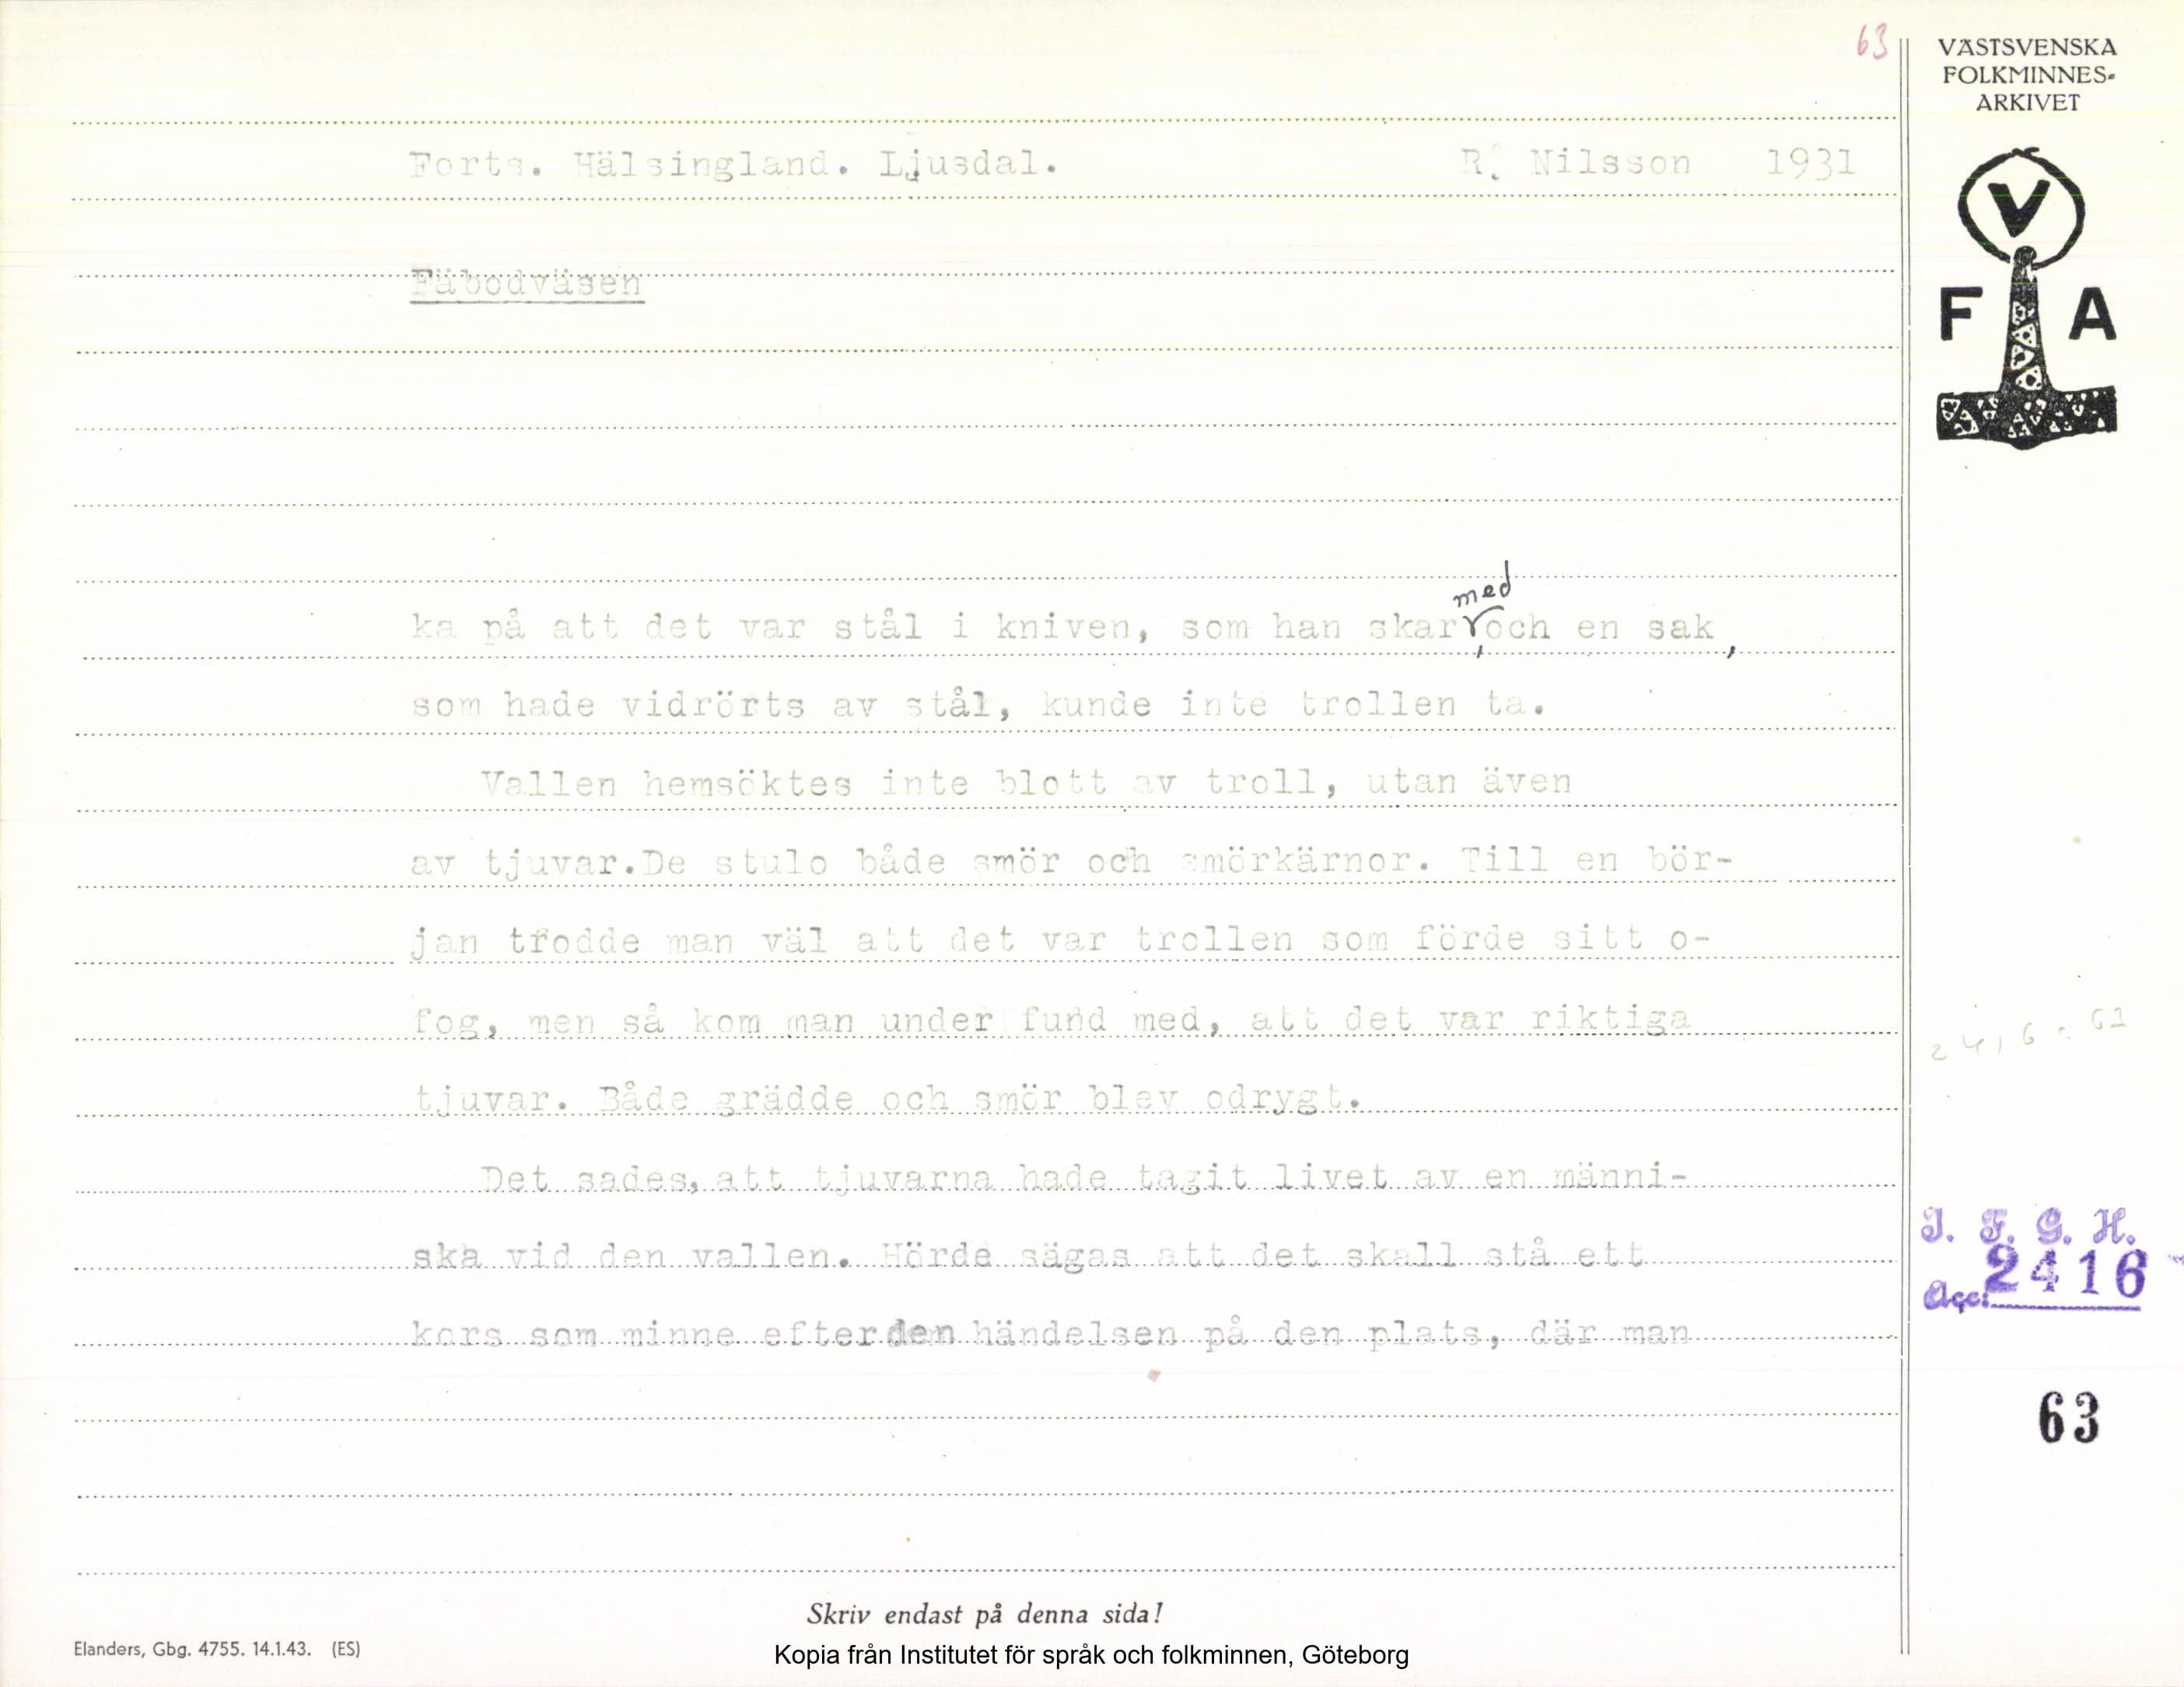 63
VÄSTSVENSKA
FOLKMINNES-
ARKIVET
V
F A
Forts. Hälsingland. Ljusdal. R. Nilsson 1931
Fäbodväsen
med
ka på att det var stål i kniven, som han skar, och en sak,
som hade vidrörts av stål, kunde inte trollen ta.
Vallen hemsöktes inte blott av troll, utan även
av tjuvar.De stulo både smör och smörkärnor. Till en bör-
jan trodde man väl att det var trollen som förde sitt o-
fog, men så kom man under fund med, att det var riktiga
tjuvar. Både grädde och smör blev odrygt.
Det sades, att tjuvarna hade tagit livet av en männi-
ska vid den vallen. Hörde sägas att det skall stå ett
kors som minne efter den händelsen på den plats, där man
2416:
I. F. G. H.
Acc: 2416
63
Skriv endast på denna sida!
Elanders, Gbg. 4755. 14.1.43. (ES)
Kopia från Institutet för språk och folkminnen, Göteborg